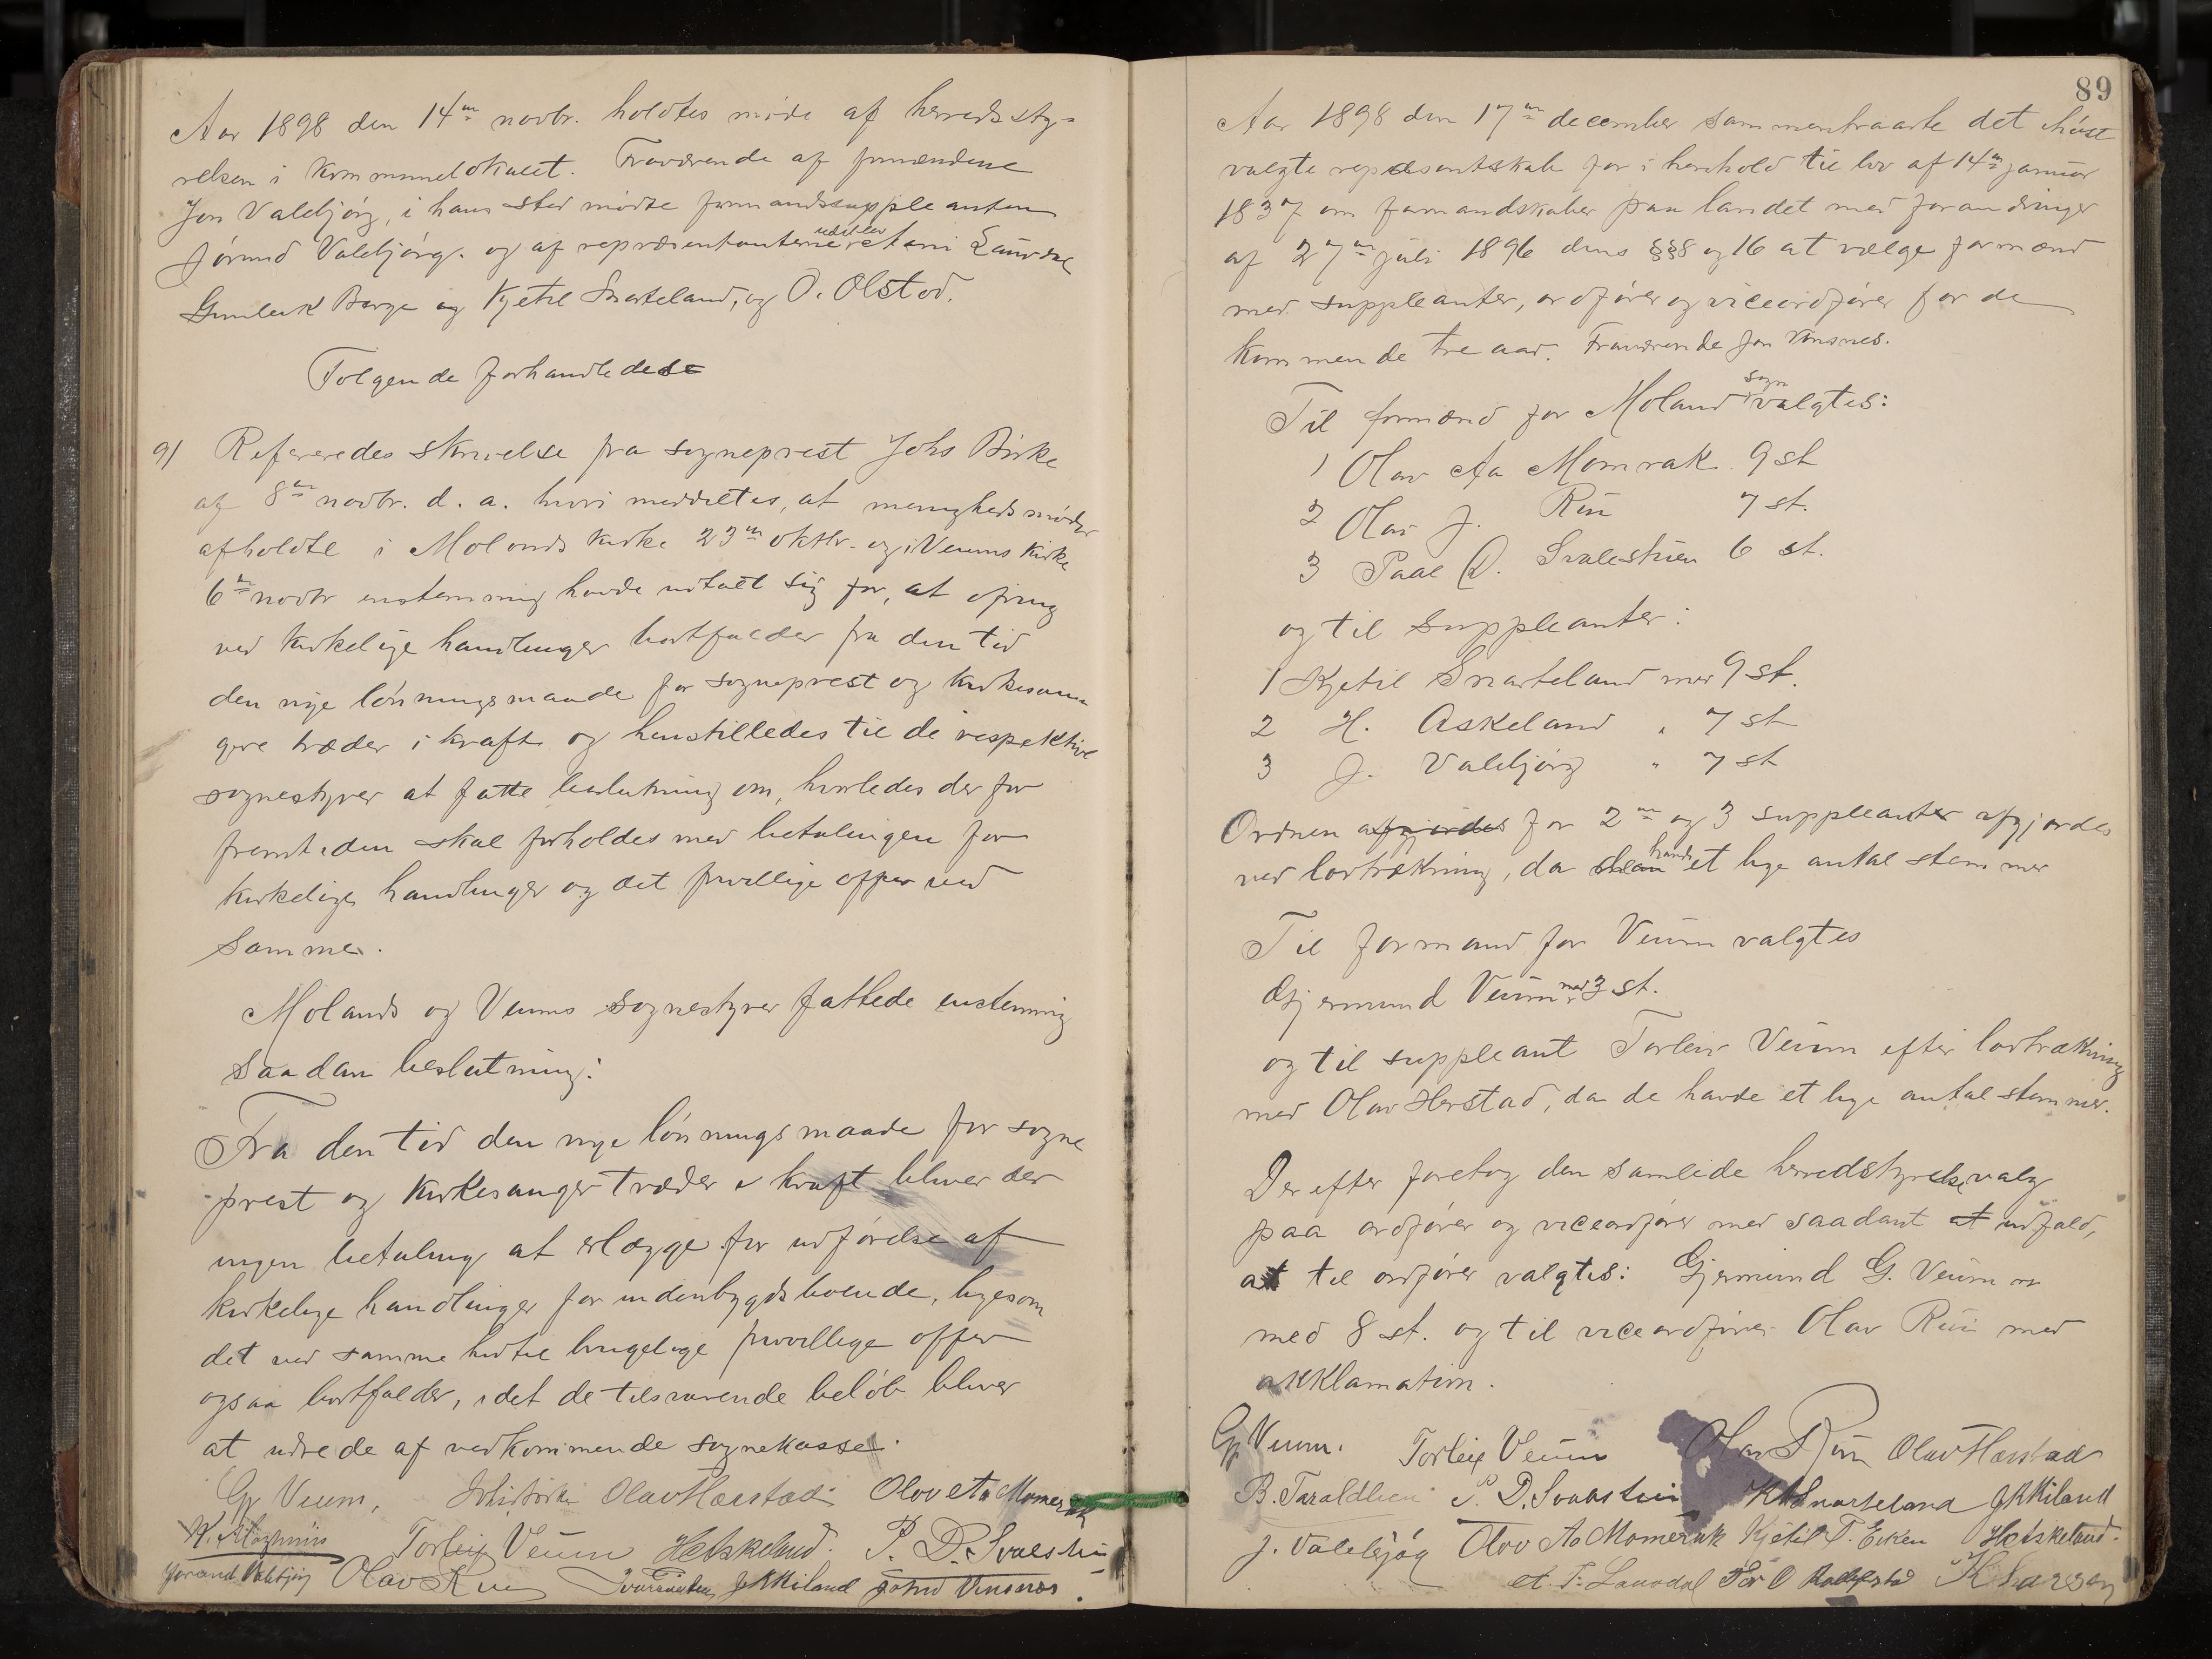 Aar 1898 den 14de novbr. holdtes möde af herredssty-
relsen i Kommunelokalet. Fraværende af formændene
Jon Valebjörg, i hans sted mödte formandssuppleanten
Jörund Valebjörg. og af repræsentanterne Aani Lauvdal
Gunleik Berge og Kjetil Snarteland, og O. Olstad.
Følgende forhandledes
9) Refereredes skrivelse fra sogneprest Johs Birke
af 8de novbr. d. a. hvori meddeltes, at menighedsmöder
afholdte i Molands kirke 23de oktbr. og i Veums kirke
6de novbr enstemmig havde udtalt sig for, at ofring
ved kirkelige handlinger bortfalder fra den tid
den nye lönningsmaade for sogneprest og kirkesan-
gere træder i kraft og henstilledes til de respektive
sognestyrer at fatte beslutning om, hvorledes der for
fremtiden skal forholdes med betalingen for
kirkelige handlinger og det frivillige offer ved
samme.
Molands og Veums sognestyrer fattede enstemmig
saadan beslutning:
Fra den tid den nye lönningsmaade for sogne
prest og kirkesanger træder i kraft bliver der
ingen betaling at erlægge for udförelse af
kirkelige handlinger for indenbygds boende, ligesom
det ved samme hidtil brugelige frivillige offer
ogsaa bortfalder, idet de tilsvarende belöb bliver
at udrede af vedkommende sognekasse.
Gj Veum, Olav Harstad Olov Aa Momerak
Torleif Veum H Askeland. P. D. Svalestu
Jörund Valebjörg Olav Rui J K Kiland John Vinsnes.
89
Aar 1898 den 17de december sammentraadte det i höst
valgte repræsentskab for i henhold til lov af 14de januar
1837 om formandskaber paa landet med forandringer
af 27de juli 1896 dens §§8 og 16 at vælge formænd
med suppleanter, ordförer og viceordförer for de
kommende tre aar. Fraværende Jon Vinsnes.
Til formænd for Moland sogn valgtes:
1 Olav Aa Momrak 9 st
2 Olav J. Rui 7 st.
3 Paal D. Svalestuen 6 st.
og til suppleanter:
1 Kjetil Snarteland med 9 st.
2 H. Askeland " 7 st
3 J. Valebjörg " 7 st
Ordnen afgjordes for 2de og 3 suppleanter afgjordes
ved lodtrækning, da havde et lige antal stemmer
Til formand for Veum valgtes
Gjermund Veum med 3 st.
og til suppleant Torleiv Veum efter lodtrækning
med Olav Herstad, da de havde et lige antal stemmer.
Derefter foretog den samlede herredstyrelse valg
paa ordförer og viceordförer med saadant at udfald,
at til ordförer valgtes: Gjermund G. Veum
med 8 st. og til viceordförer Olav Rui med
akklamation.
Gj Veum. Torleif Veum Olav Rui Olav Harstad
B. Taraldlien P. D. Svalestuen K Snarteland J K Kiland
J. Valebjög Olov Aa Momerak Kjetil T. Eiken H Askeland.
A. T. Lauvdal